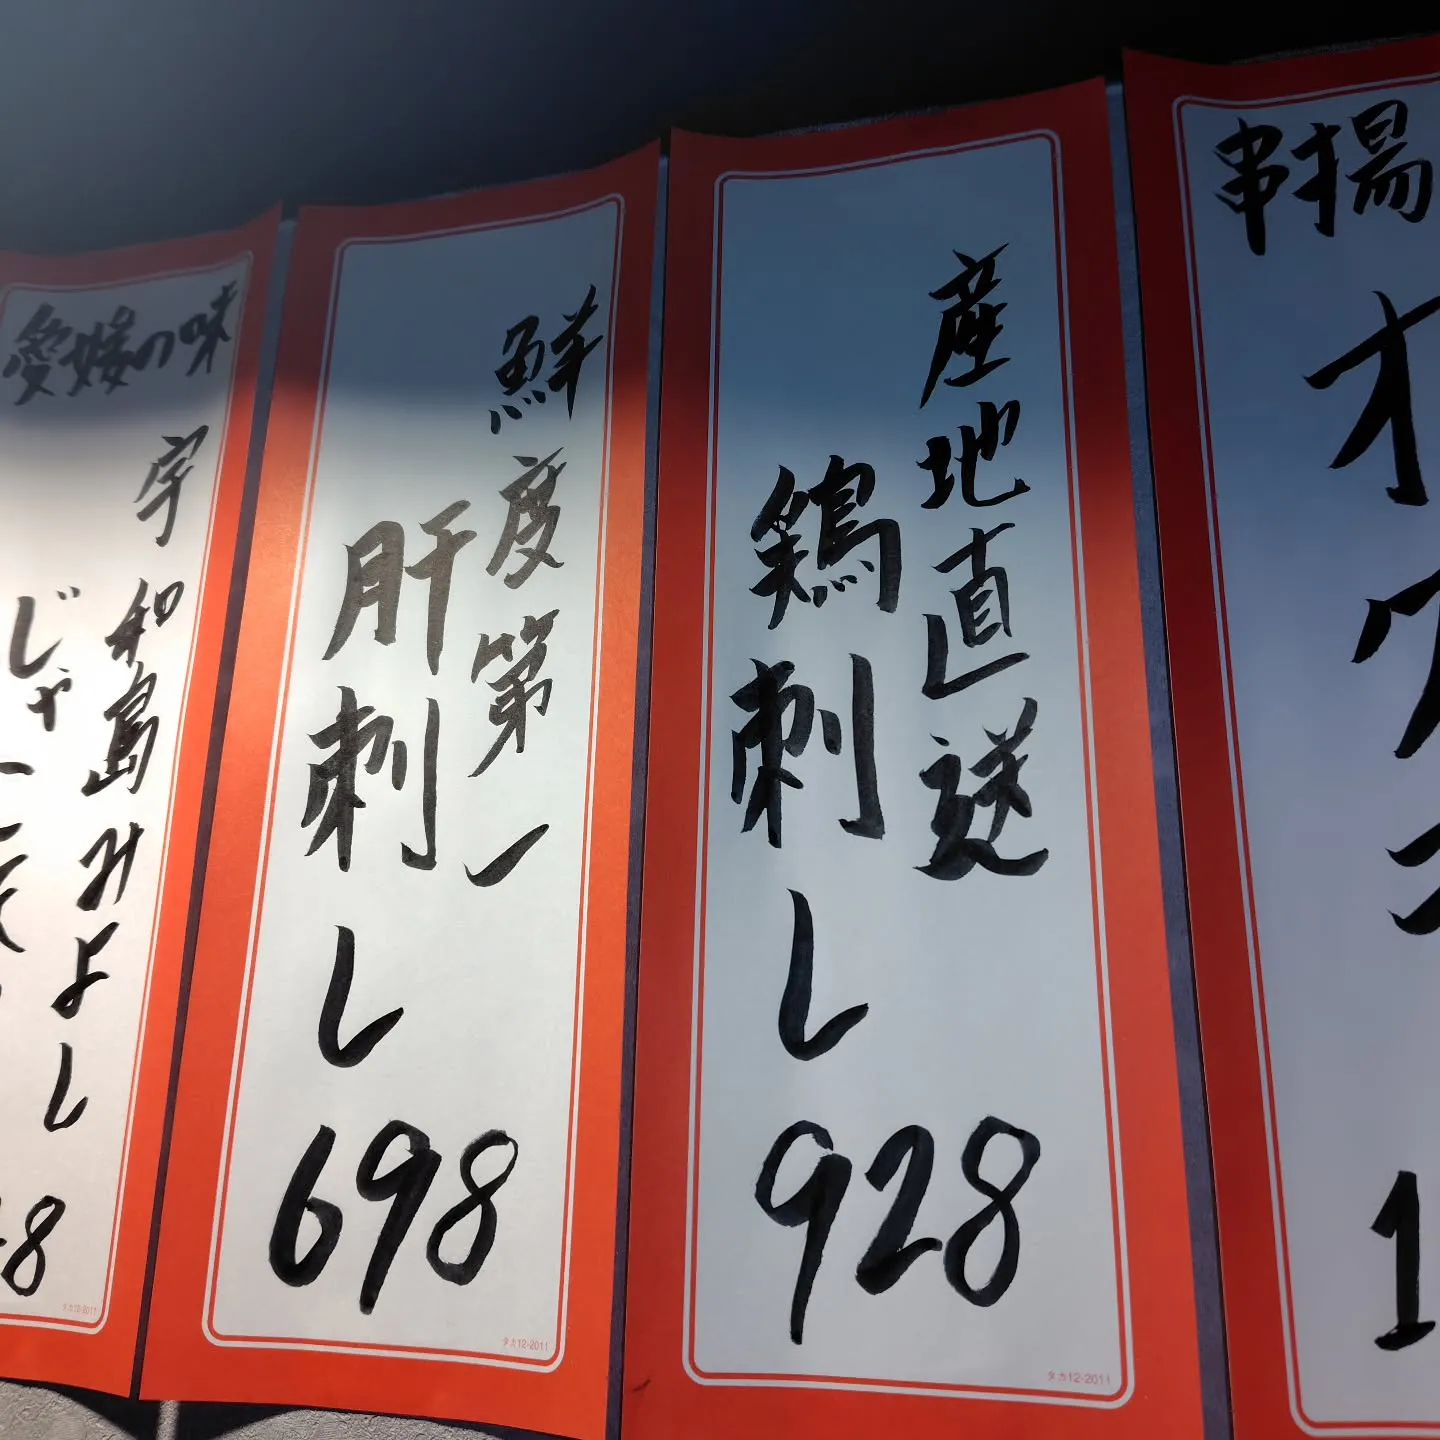 串揚
オクラ
1
産地直送
鶏刺し
928
タカ12-2011
鮮度第一
肝刺し
698
タカ12-2011
愛媛の味
宇和島みよし
じゃこ天
8
タカ12-2011